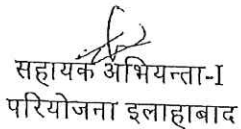 सहायक अभियन्ता-I
परियोजना इलाहाबाद